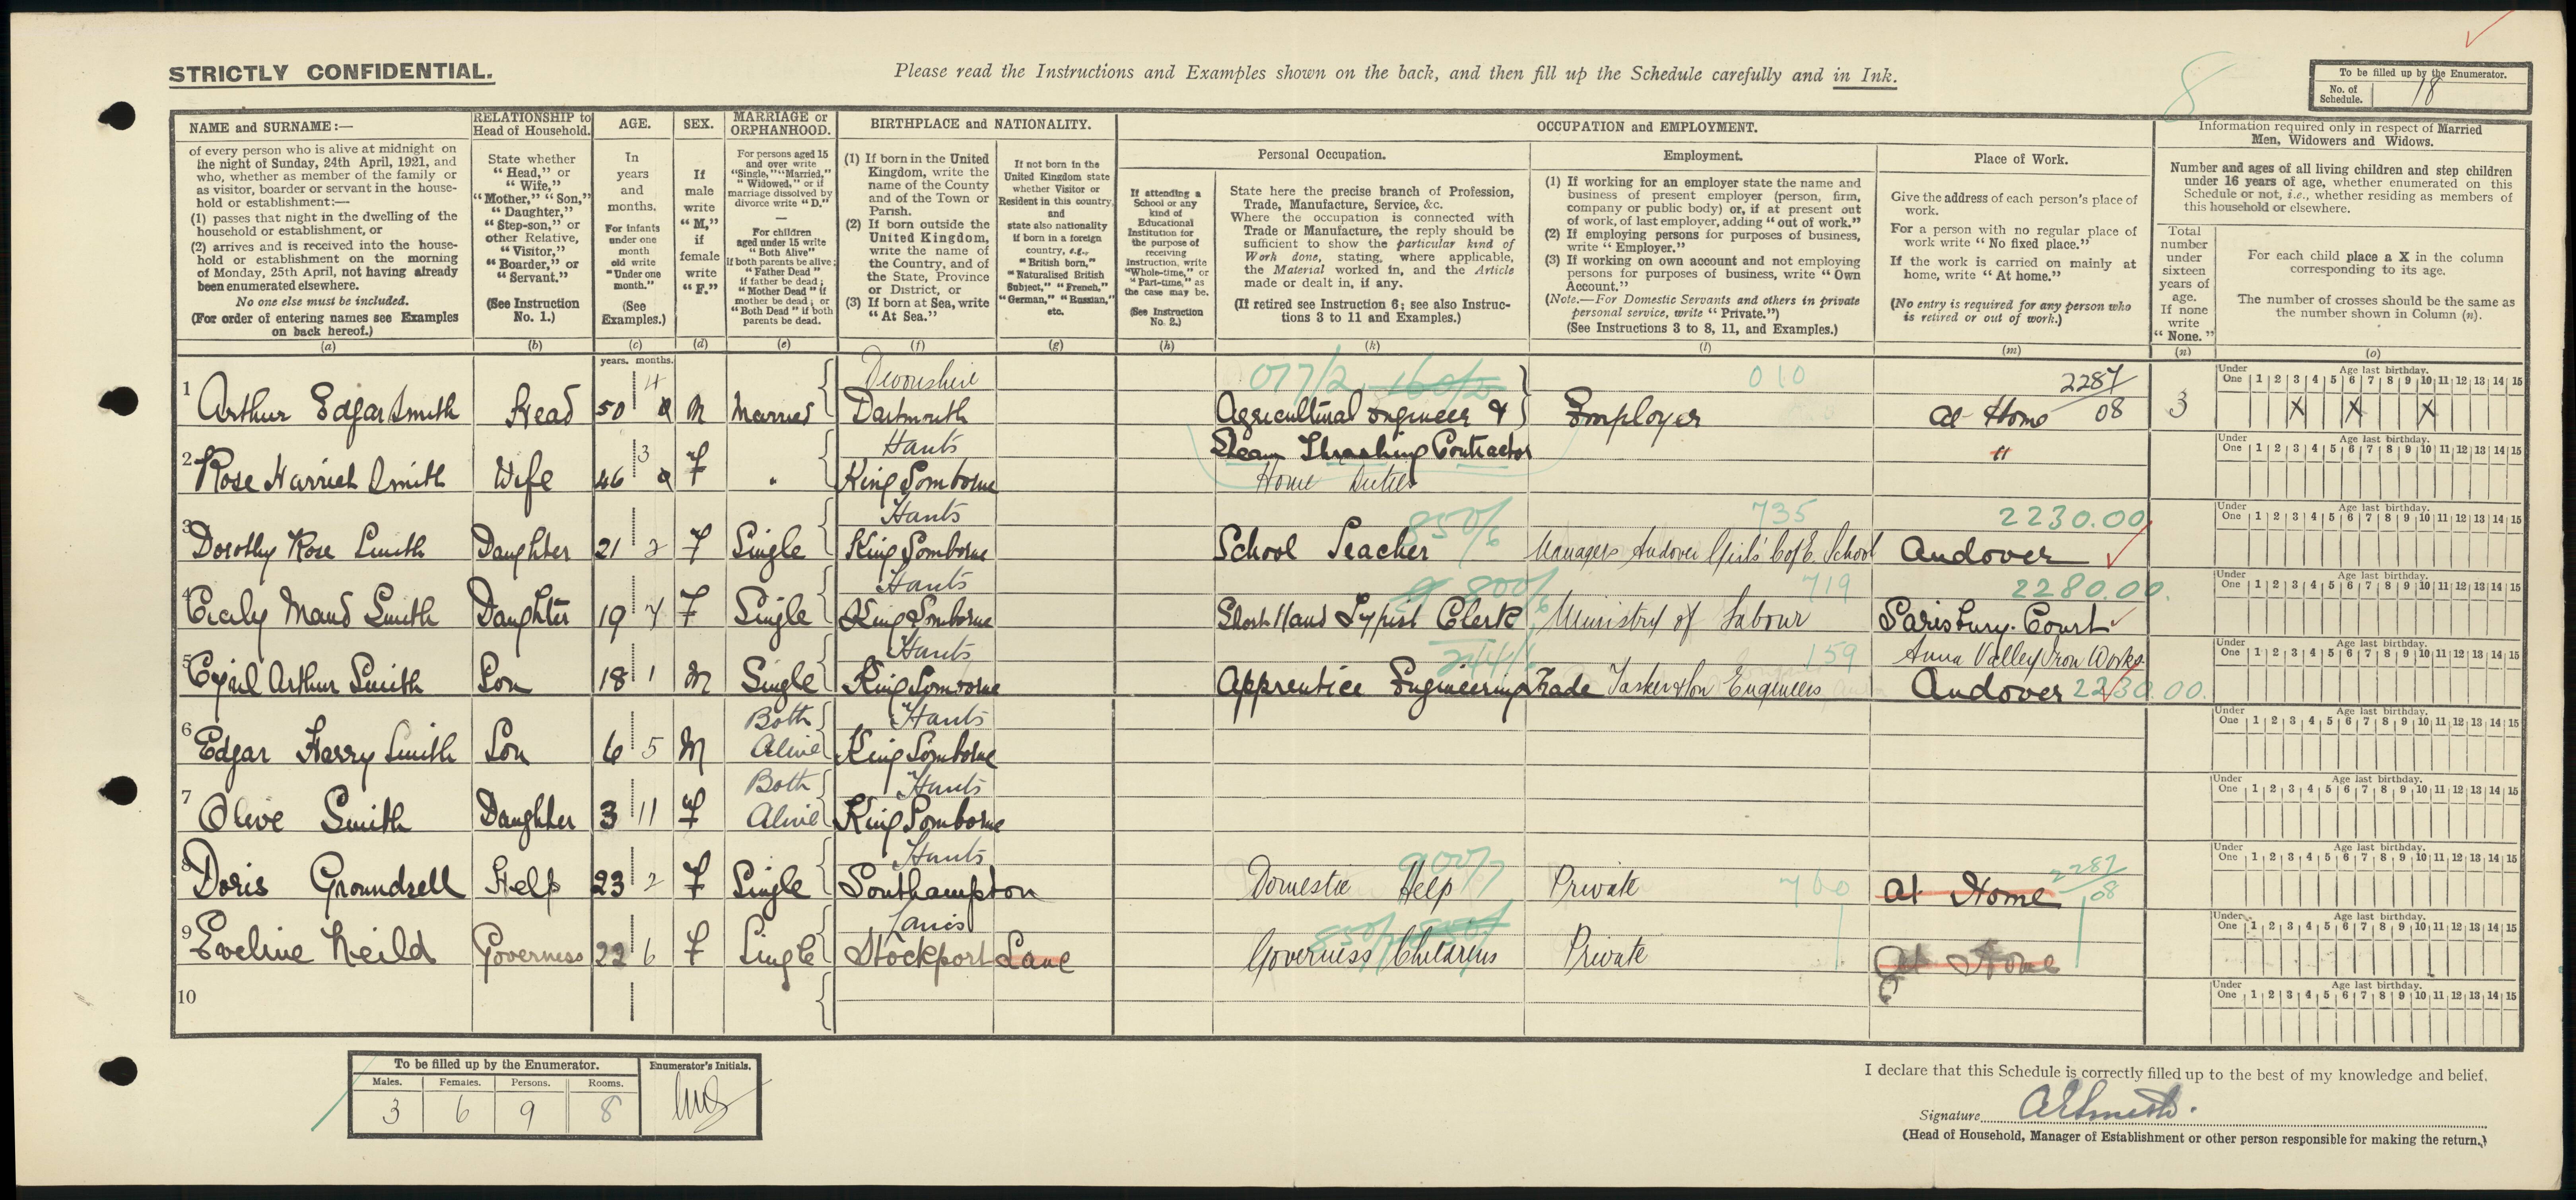 STRICTLY CONFIDENTIAL.
Please read the Instructions and Examples shown on the back, and then fill up the Schedule carefully and in Ink.
8
To be filled up by the Enumerator.
No. of Schedule. 18
NAME and SURNAME:—
of every person who is alive at midnight on
the night of Sunday, 24th April, 1921, and
who, whether as member of the family or
as visitor, boarder or servant in the house-
hold or establishment:—
(1) passes that night in the dwelling of the
household or establishment, or
(2) arrives and is received into the house-
hold or establishment on the morning
of Monday, 25th April, not having already
been enumerated elsewhere.
No one else must be included.
(For order of entering names see Examples
on back hereof.)
(a)
RELATIONSHIP to
Head of Household.
State whether
"Head," or
"Wife,"
"Mother," "Son,"
"Daughter,"
"Step-son," or
other Relative,
"Visitor,"
"Boarder," or
"Servant."
(See Instruction
No. 1.)
(b)
AGE.
In
years
and
months.
For infants
under one
month
old write
"Under one
month."
(See
Examples.)
(c)
SEX.
If
male
write
"M,"
if
female
write
"F."
(d)
MARRIAGE or
ORPHANHOOD.
For persons aged 15
and over write
"Single," "Married,"
"Widowed," or if
marriage dissolved by
divorce write "D."
For children
aged under 15 write
"Both Alive"
if both parents be alive;
"Father Dead"
if father be dead;
"Mother Dead" if
mother be dead; or
"Both Dead" if both
parents be dead.
(e)
BIRTHPLACE and NATIONALITY.
(1) If born in the United
Kingdom, write the
name of the County
and of the Town or
Parish.
(2) If born outside the
United Kingdom,
write the name of
the Country, and of
the State, Province
or District, or
(3) If born at Sea, write
"At Sea."
(f)
If not born in the
United Kingdom state
whether Visitor or
Resident in this country,
and
state also nationality
if born in a foreign
country, e.g.,
"British born,"
"Naturalised British
Subject," "French,"
"German," "Russian,"
etc.
(g)
OCCUPATION and EMPLOYMENT.
If attending a
School or any
kind of
Educational
Institution for
the purpose of
receiving
instruction, write
"Whole-time," or
"Part-time," as
the case may be.
(See Instruction
No. 2.)
(h)
Personal Occupation.
State here the precise branch of Profession,
Trade, Manufacture, Service, &c.
Where the occupation is connected with
Trade or Manufacture, the reply should be
sufficient to show the particular kind of
Work done, stating, where applicable,
the Material worked in, and the Article
made or dealt in, if any.
(If retired see Instruction 6; see also Instruc-
tions 3 to 11 and Examples.)
(k)
Employment.
(1) If working for an employer state the name and
business of present employer (person, firm,
company or public body) or, if at present out
of work, of last employer, adding "out of work."
(2) If employing persons for purposes of business,
write "Employer."
(3) If working on own account and not employing
persons for purposes of business, write "Own
Account."
(Note.—For Domestic Servants and others in private
personal service, write "Private.")
(See Instructions 3 to 8, 11, and Examples.)
(l)
Place of Work.
Give the address of each person's place of
work.
For a person with no regular place of
work write "No fixed place."
If the work is carried on mainly at
home, write "At home."
(No entry is required for any person who
is retired or out of work.)
(m)
Information required only in respect of Married
Men, Widowers and Widows.
Number and ages of all living children and step children
under 16 years of age, whether enumerated on this
Schedule or not, i.e., whether residing as members of
this household or elsewhere.
Total
number
under
sixteen
years of
age.
If none
write
"None."
(n)
For each child place a X in the column
corresponding to its age.
The number of crosses should be the same as
the number shown in Column (n).
(o)
years. months.
Under One Age last birthday. 1 2 3 4 5 6 7 8 9 10 11 12 13 14 15
1 Arthur Edgar Smith Head 50 4 M Married Devonshire Dartmouth 077/2 160/0 Agricultural Engineer & Steam Thrashing Contractor 010 Employer At Home 2287/08 3 X X X
2 Rose Harriet Smith Wife 46 3 F " Hants King Somborne Home Duties "
Under One Age last birthday. 1 2 3 4 5 6 7 8 9 10 11 12 13 14 15
3 Dorothy Rose Smith Daughter 21 2 F Single Hants King Somborne School Teacher 850/6 735 Managers Andover Girls' C of E. School 2230.00 Andover
Under One Age last birthday. 1 2 3 4 5 6 7 8 9 10 11 12 13 14 15
4 Cecily Maud Smith Daughter 19 7 F Single Hants King Somborne 800/6 Short Hand Typist Clerk 719 Ministry of Labour 2280.00. Sarisbury Court
Under One Age last birthday. 1 2 3 4 5 6 7 8 9 10 11 12 13 14 15
5 Cyril Arthur Smith Son 18 1 M Single Hants King Somborne Apprentice Engineering Trade 159 Tasker & Son Engineers Anna Valley Iron Works Andover 2230.00.
Under One Age last birthday. 1 2 3 4 5 6 7 8 9 10 11 12 13 14 15
6 Edgar Harry Smith Son 6 5 M Both Alive Hants King Somborne
Under One Age last birthday. 1 2 3 4 5 6 7 8 9 10 11 12 13 14 15
7 Olive Smith Daughter 3 11 F Both Alive Hants King Somborne
Under One Age last birthday. 1 2 3 4 5 6 7 8 9 10 11 12 13 14 15
8 Doris Groundsell Help 23 2 F Single Hants Southampton 900/7 Domestic Help Private 760 At Home 2287/08
Under One Age last birthday. 1 2 3 4 5 6 7 8 9 10 11 12 13 14 15
9 Eveline Neild Governess 22 6 F Single Lancs Stockport Lanc 850/ Governess Childrens Private At Home
Under One Age last birthday. 1 2 3 4 5 6 7 8 9 10 11 12 13 14 15
10
Under One Age last birthday. 1 2 3 4 5 6 7 8 9 10 11 12 13 14 15
To be filled up by the Enumerator.
Males. Females. Persons. Rooms.
3 6 9 8
Enumerator's Initials.
I declare that this Schedule is correctly filled up to the best of my knowledge and belief.
Signature A E Smith.
(Head of Household, Manager of Establishment or other person responsible for making the return.)